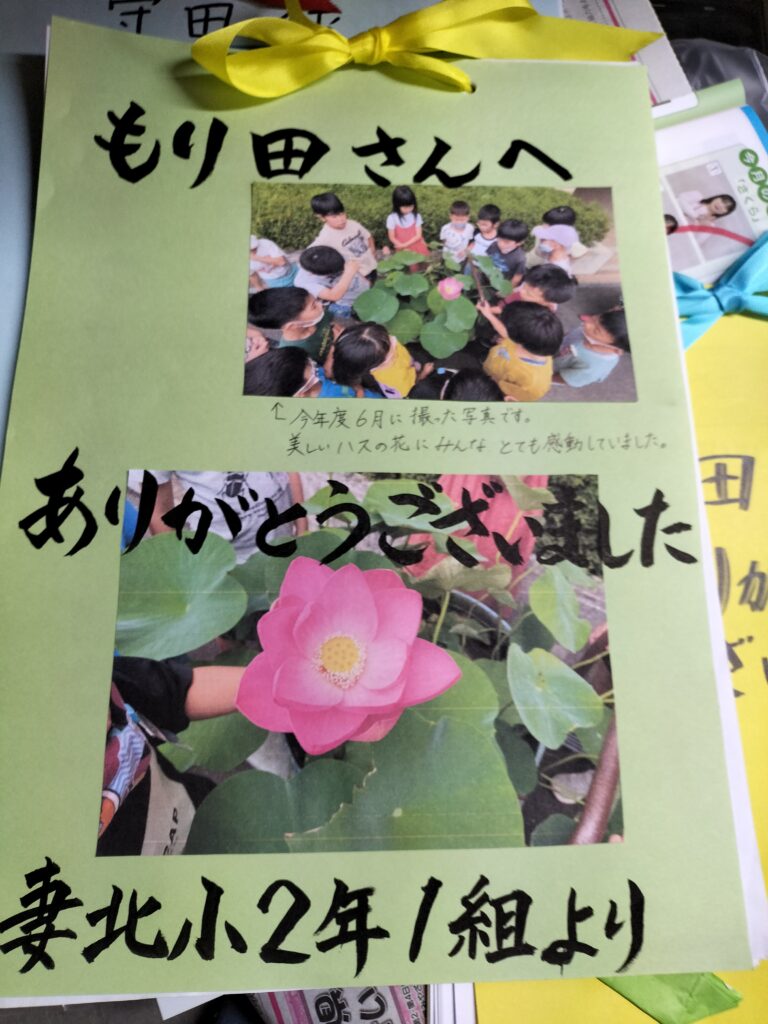 守田
もり田さんへ
↑今年度6月に撮った写真です。
美しいハスの花にみんなとても感動していました。
ありがとうございました
妻北小2年1組より
今月の
「さくら」
田
りが
ざい